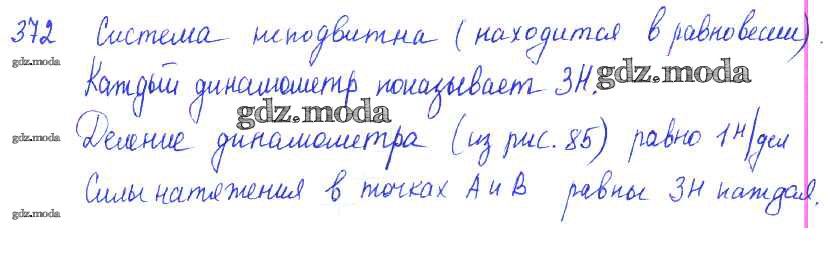 372 Система неподвижна (находится в равновесии).
gdz.moda
Каждый динамометр показывает 3Н. gdz.moda
gdz.moda
gdz.moda Деление динамометра (из рис. 85) равно 1 Н/дел
Силы натяжения в точках А и В равны 3Н каждая.
gdz.moda